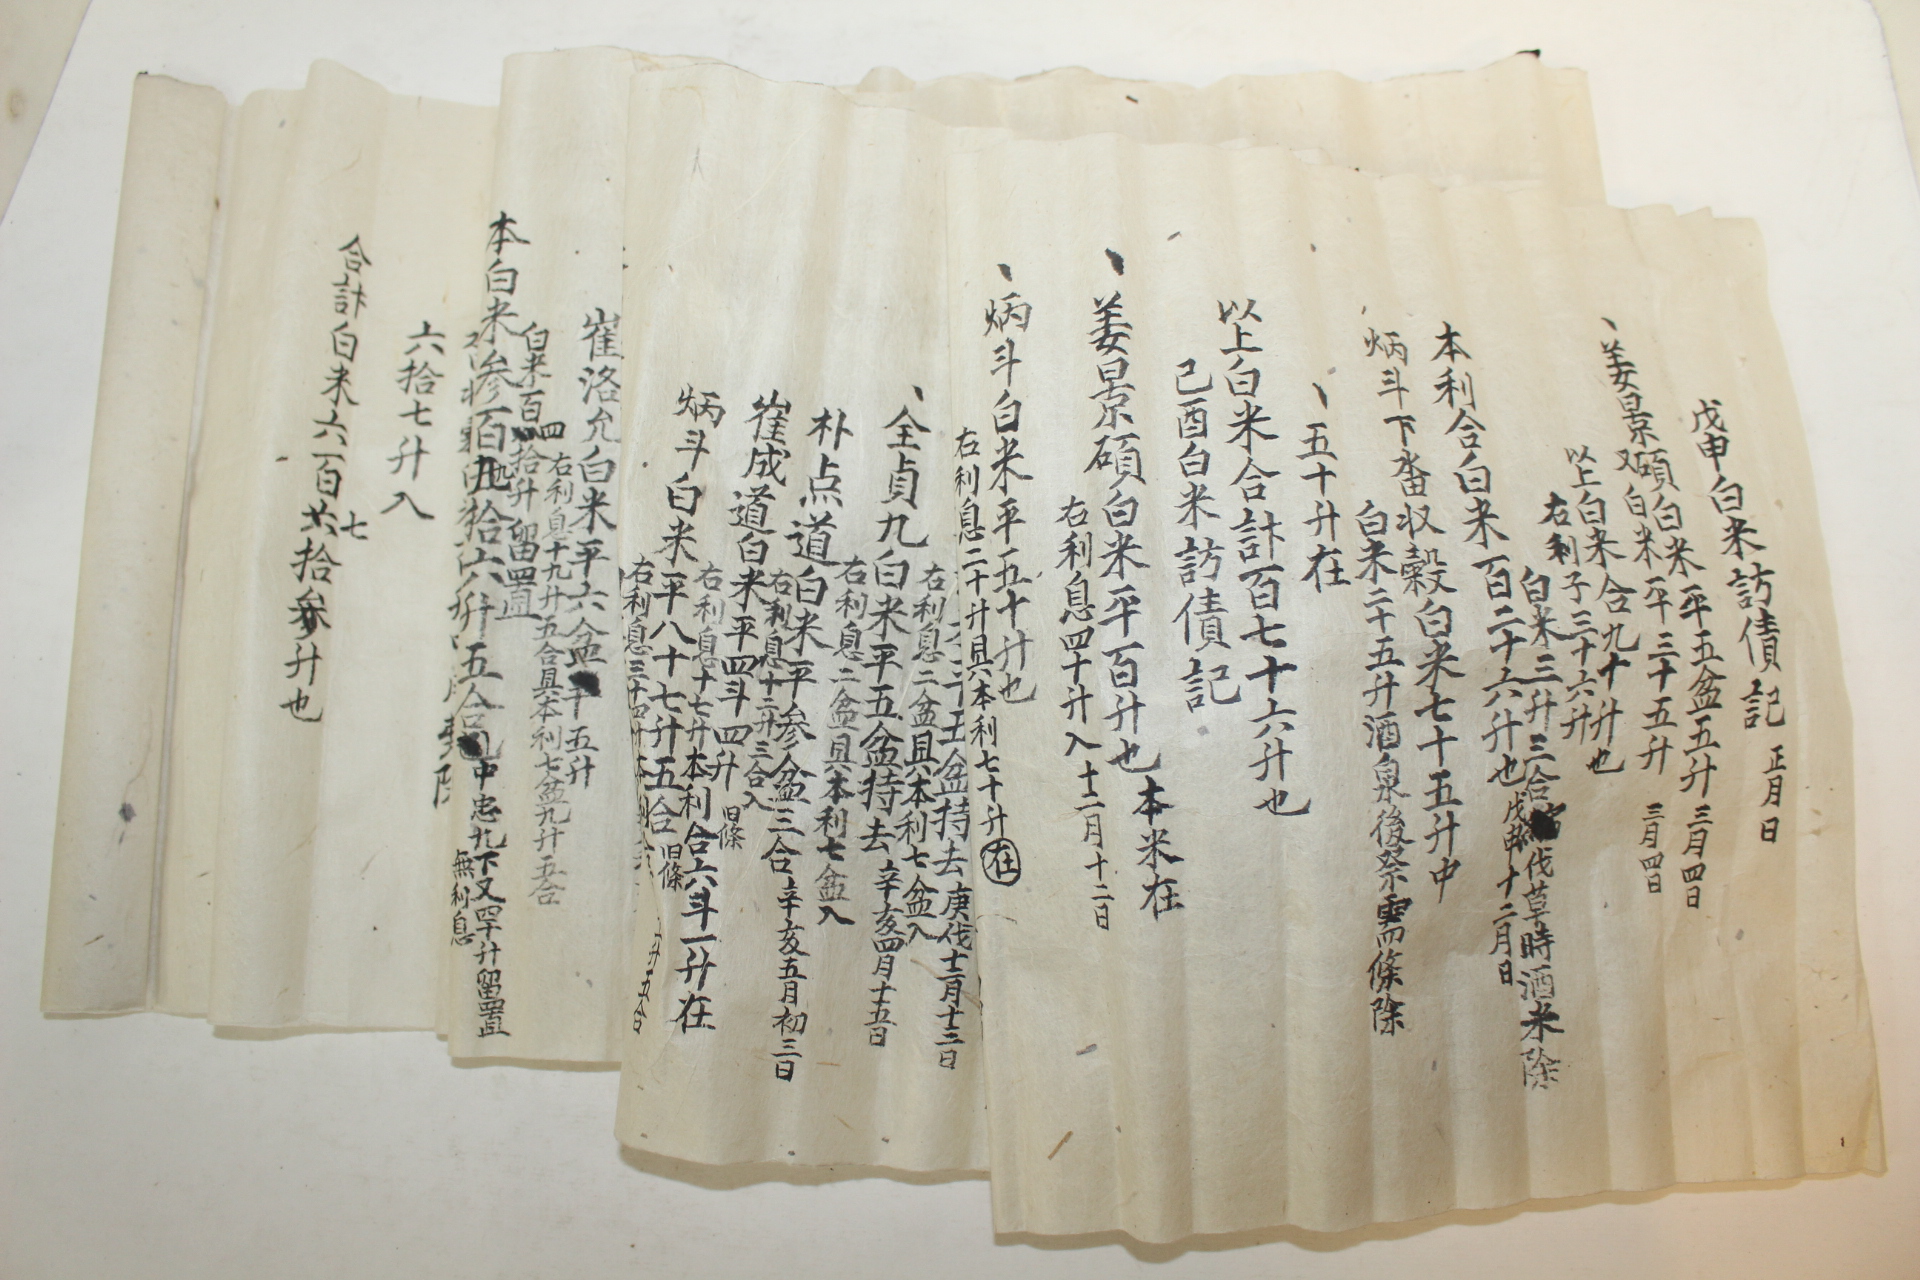 戊申白米訪債記 正月日
、姜景碩白米平五盆五升 三月四日
又白米平三十五升 三月四日
以上白米合九十升也
右利子三十六升
白米三升三合 伐草時酒米除
本利合白米百二十六升也 戊申十二月日
炳斗下畓収穀白米七十五升中
白米二十五升酒泉後祭需條除
、五十升在
以上白米合計百七十六升也
己酉白米訪債記
、姜景碩白米平百升也 本米在
右利息四十升入 十二月十二日
、炳斗白米平五十升也
右利息二十升具本利七十升 在
五盆持去 庚伐十二月十三日
右利息二盆具本利七盆入
、全貞九白米平五盆持去 辛亥四月十五日
右利息二盆具本利七盆入
朴点道白米平参盆三合 辛亥五月初三日
右利息十二升三合入
崔成道白米平四斗四升 旧條
右利息十七升本利合六斗一升在
炳斗白米平八十七升五合 旧條
右利息三十四升
升五合
崔洛允白米平六盆 五升
右利息十九升五合具本利七盆九升五合
白米百四拾升留置
本白米参百 拾六升五合 中忠九下又四十升留置
無利息
六拾七升入
合計白米六百六七拾参升也